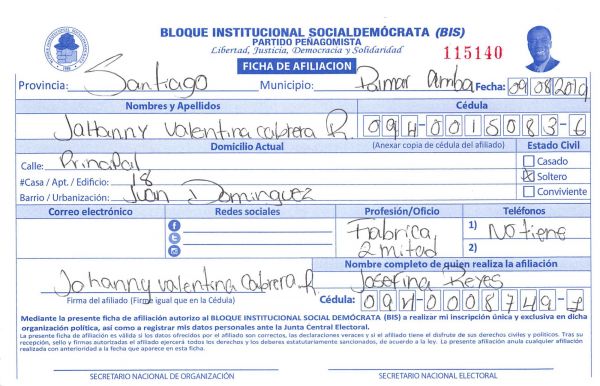 BLOQUE INSTITUCIONAL SOCIALDEMÓCRATA (BIS)
PARTIDO PEÑAGOMISTA
Libertad, Justicia, Democracia y Solidaridad
FICHA DE AFILIACION
115140
Provincia: Santiago Municipio: Palmar Arriba Fecha: 09/08/2019
Nombres y Apellidos Cédula
Johanny Valentina Cabrera R. 094-0015083-6
Domicilio Actual (Anexar copia de cédula del afiliado) Estado Civil
Calle: Principal Casado
#Casa / Apt. / Edificio: 18 X Soltero
Barrio / Urbanización: Juan Dominguez Conviviente
Correo electrónico Redes sociales Profesión/Oficio Teléfonos
Fabrica 1) No tiene
2 mitad 2)
Nombre completo de quien realiza la afiliación
Johanny Valentina Cabrera R. Josefina Reyes
Firma del afiliado (Firme igual que en la Cédula) Cédula: 094-0008749-
Mediante la presente ficha de afiliación autorizo al BLOQUE INSTITUCIONAL SOCIAL DEMÓCRATA (BIS) a realizar mi inscripción única y exclusiva en dicha
organización política, así como a registrar mis datos personales ante la Junta Central Electoral.
La presente ficha de afiliación es válida si los datos ofrecidos por el afiliado son correctos, las declaraciones veraces y si el afiliado tiene el disfrute de sus derechos civiles y políticos. Tras su
recepción, sello y firmas autorizadas el afiliado ejercerá todos los derechos y los deberes estatutariamente sancionados, de acuerdo a la ley. La presente afiliación anula cualquier afiliación
realizada con anterioridad a la fecha que aparece en esta ficha.
SECRETARIO NACIONAL DE ORGANIZACIÓN SECRETARIO NACIONAL ELECTORAL